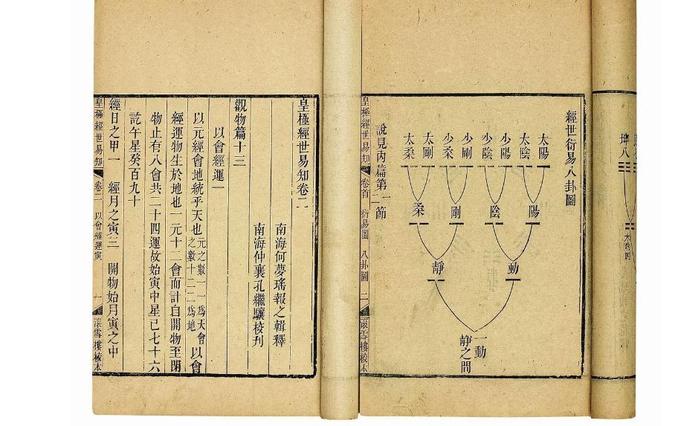 坤八
經世衍易八卦圖
太陽
太陰
少陽
少陰
少剛
少柔
太剛
太柔
陽
陰
剛
柔
動
靜
一動
靜之間
說見內篇第一節
皇極經世易知 卷首 衍易圖 八卦圖 二 嶽雪樓校本
皇極經世易知卷二
南海何夢瑤報之輯釋
南海仲襄孔繼驤校刊
觀物篇十三
以會經運一
以元經會地統乎天也元之數一一爲天會之數十二二爲地以會
經運物生於地也一元十二會而計自開物至閉
物止有八會共二十四運故始寅中星已七十六
訖午星癸百九十
經日之甲一 經月之寅三 開物始月寅之中
皇極經世易知 卷二 以會經運寅 一 嶽雪樓校本